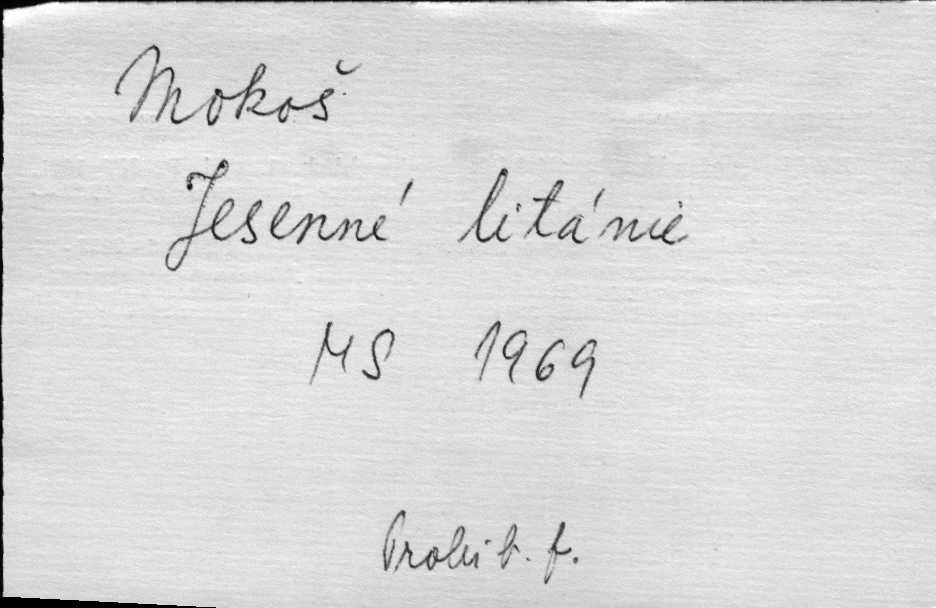 Mokoš
Jesenné litánie
MS 1969
Prohib. f.